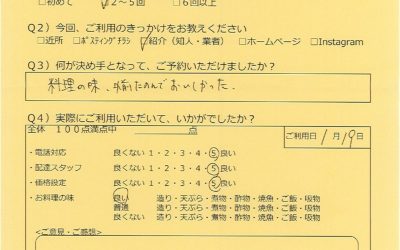 □初めて ☑2～5回 □6回以上
Q2）今回、ご利用のきっかけをお教えください
□近所 □ポスティングチラシ ☑紹介（知人・業者） □ホームページ □Instagram
Q3）何が決め手となって、ご予約いただけましたか？
料理の味、揃たのんでおいしかった.
Q4）実際にご利用いただいて、いかがでしたか？
全体 100点満点中 点
ご利用日 1月19日
・電話対応 良くない 1・2・3・4・5 良い
・配達スタッフ 良くない 1・2・3・4・5 良い
・価格設定 良くない 1・2・3・4・5 良い
・お料理の味 良い 造り・天ぷら・煮物・酢物・焼魚・ご飯・吸物
普通 造り・天ぷら・煮物・酢物・焼魚・ご飯・吸物
良くない 造り・天ぷら・煮物・酢物・焼魚・ご飯・吸物
<ご意見・ご感想>